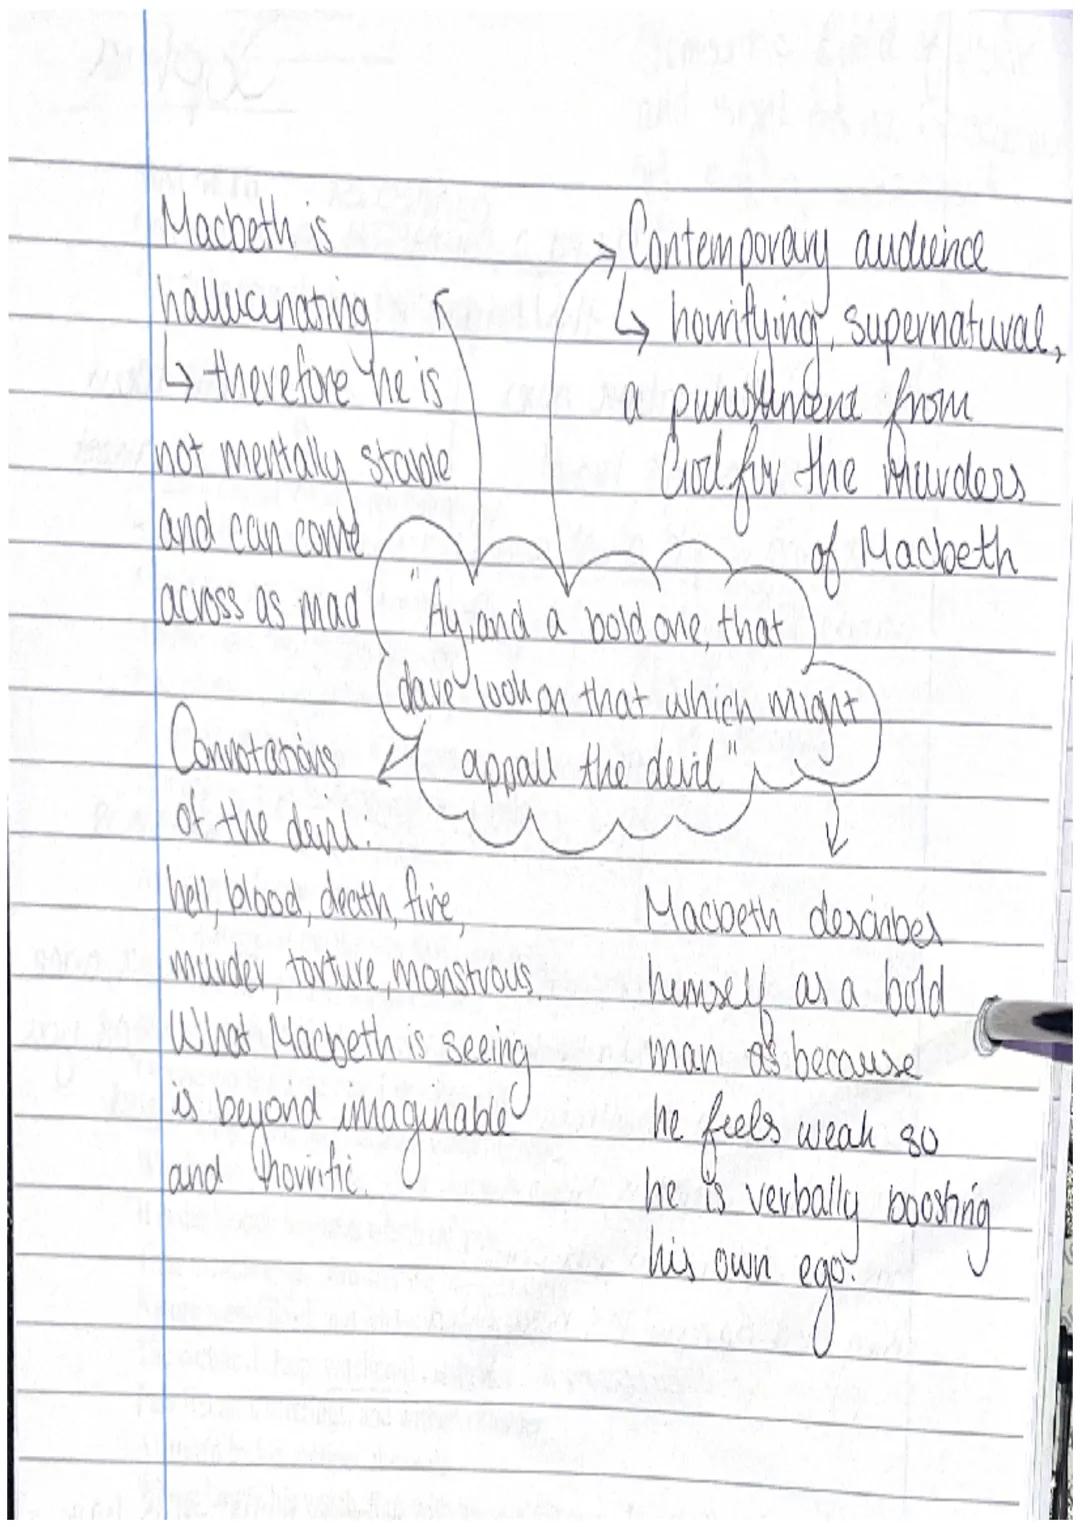 Macbeth is
hallucinating
↳ therefore he is
not mentally stable
and can come
across as mad
→ Contemporary audience
↳ horrifying, supernatural,
a punishment from
God for the murders
of Macbeth
"Ay, and a bold one, that
dare look on that which might
appall the devil"
Connotations
of the devil.
hell, blood, death, fire,
murder, torture, monstrous.
What Macbeth is seeing
is beyond imaginable
and horrific.
Macbeth describes
himself as a bold
man as because
he feels weak so
he is verbally boosting
his own ego.